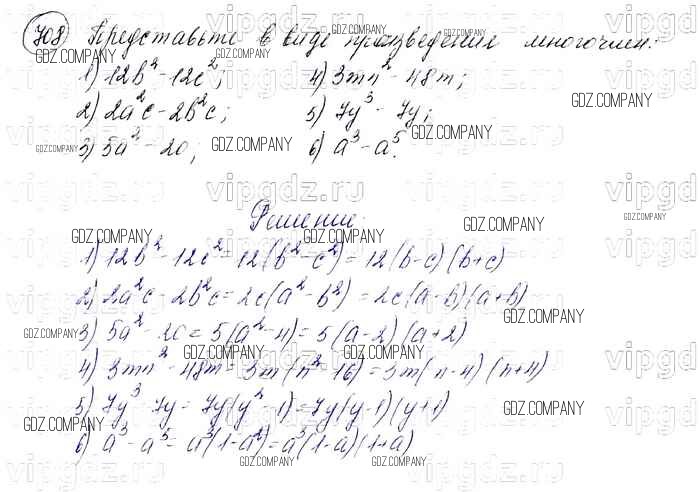 708 Представьте в виде произведения многочлен:
1) 12b² - 12c²; 4) 3mn² - 48m;
2) 2a²c - 2b²c; 5) 7y³ - 7y;
3) 5a² - 20; 6) a³ - a⁵.
Решение.
1) 12b² - 12c² = 12(b² - c²) = 12(b-c)(b+c)
2) 2a²c - 2b²c = 2c(a² - b²) = 2c(a-b)(a+b)
3) 5a² - 20 = 5(a² - 4) = 5(a-2)(a+2)
4) 3mn² - 48m = 3m(n² - 16) = 3m(n-4)(n+4)
5) 7y³ - 7y = 7y(y² - 1) = 7y(y-1)(y+1)
6) a³ - a⁵ = a³(1-a²) = a³(1-a)(1+a)
GDZ.COMPANY
vipgdz.ru